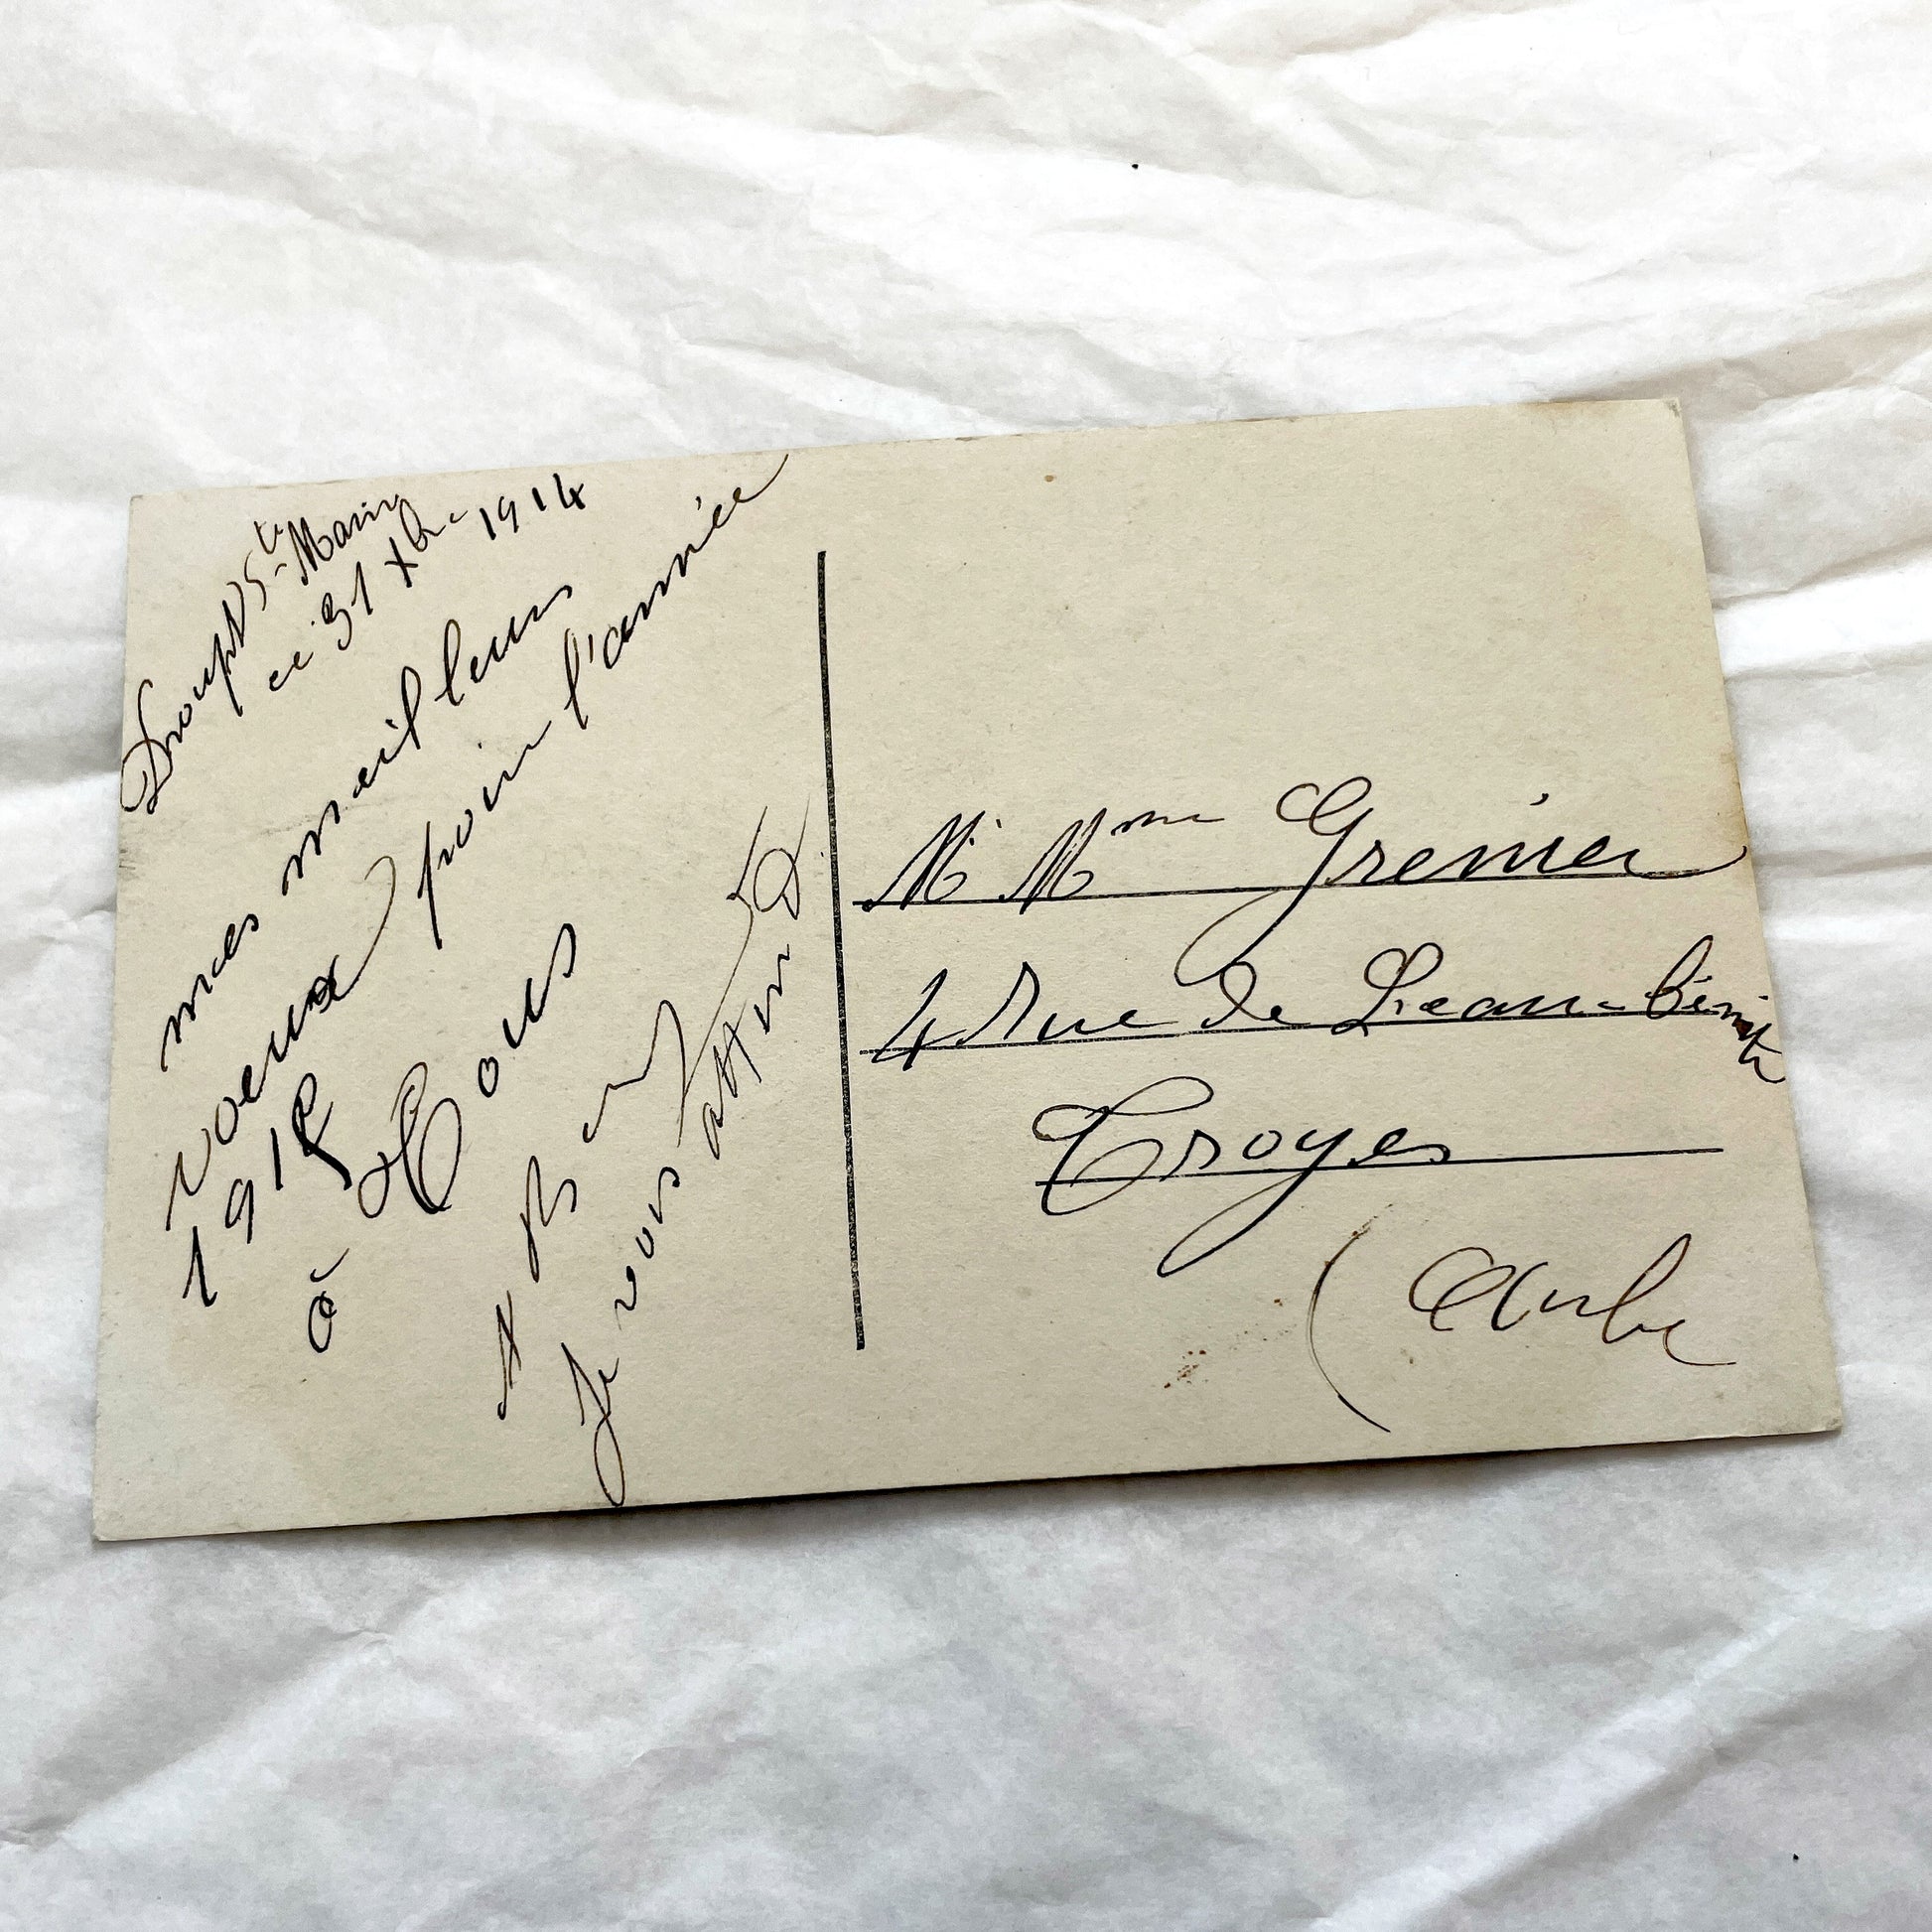 Droupt Ste-Marie
ce 31 Xbre 1914
mes meilleurs
voeux pour l'année
1915
à Tous
Je vous attends
Mr Mme Grenier
4 Rue de L'eau-bénite
Troyes
(Aube